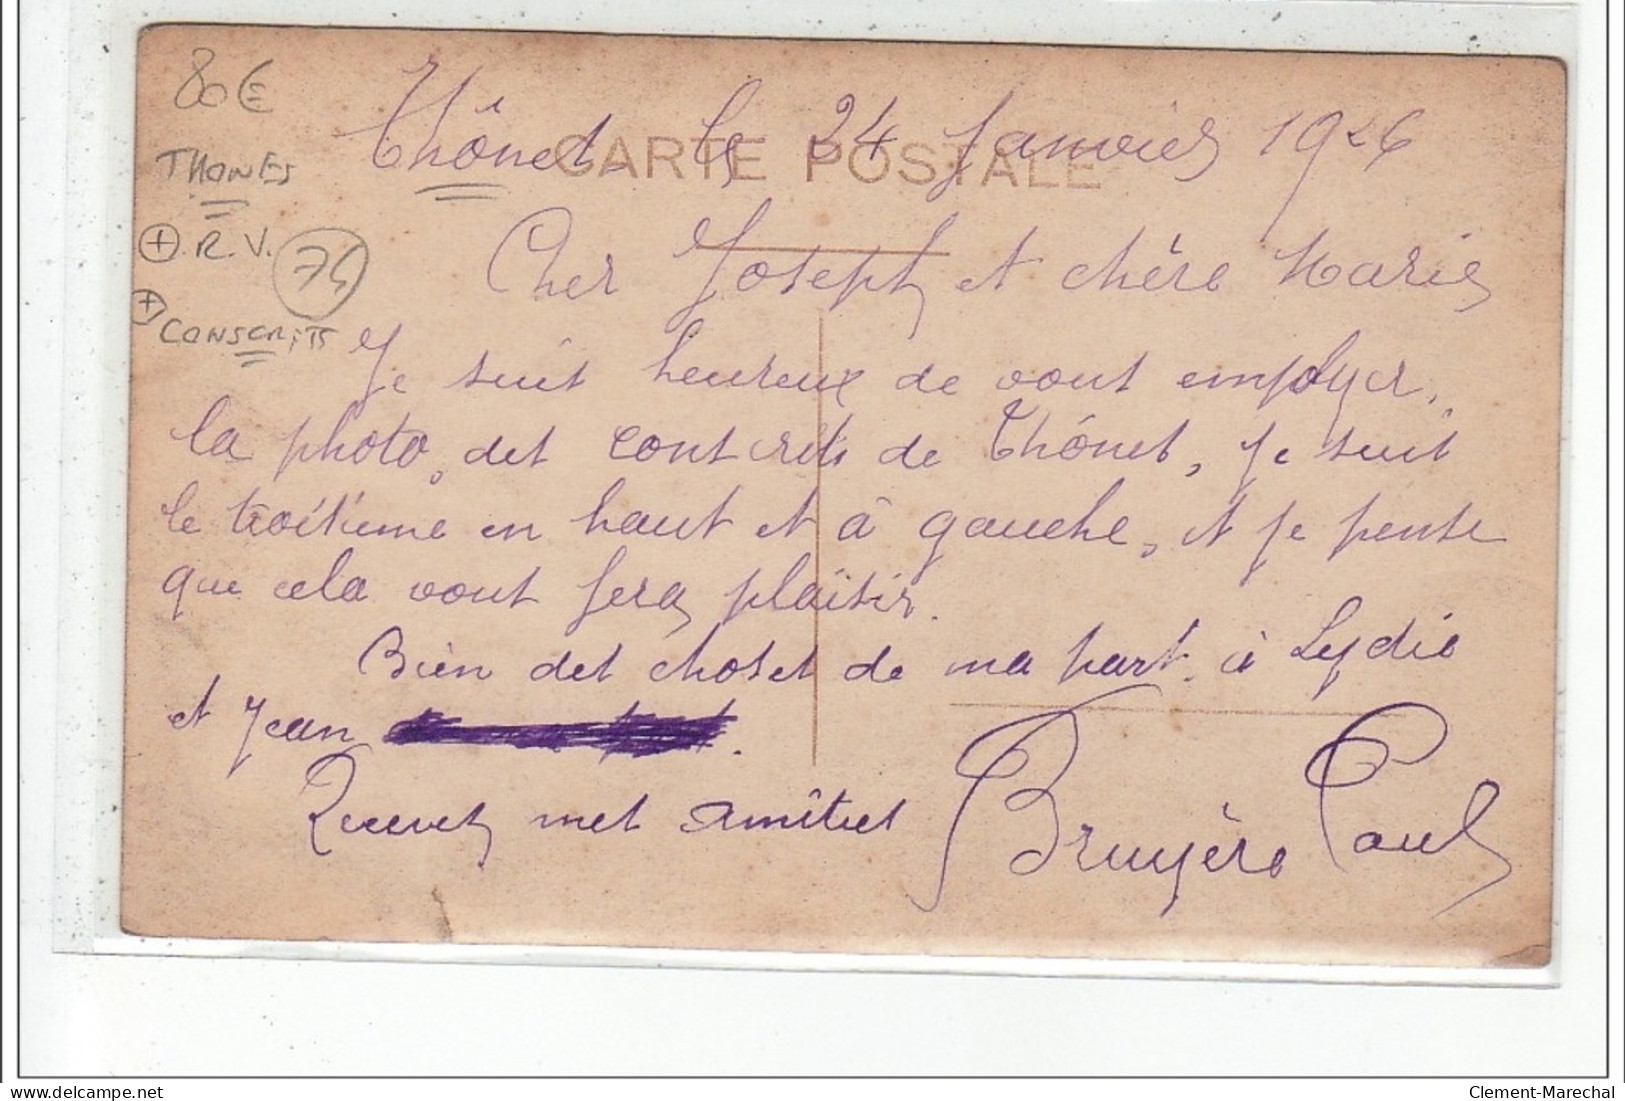 80€
THONES
+ R.V. 74
+ CONSCRITS
CARTE POSTALE
Thônes, le 24 Janvier 1926
Cher Joseph et chère Marie
Je suis heureux de vous employer,
la photo, des conscrits de Thônes, je suis
le troisième en haut et à gauche, et je pense
que cela vous fera plaisir.
Bien des choses de ma part à Lydie
et Jean
Recevez mes amîties
Bruyère Paul
delcampe.net
Clement-Marechal